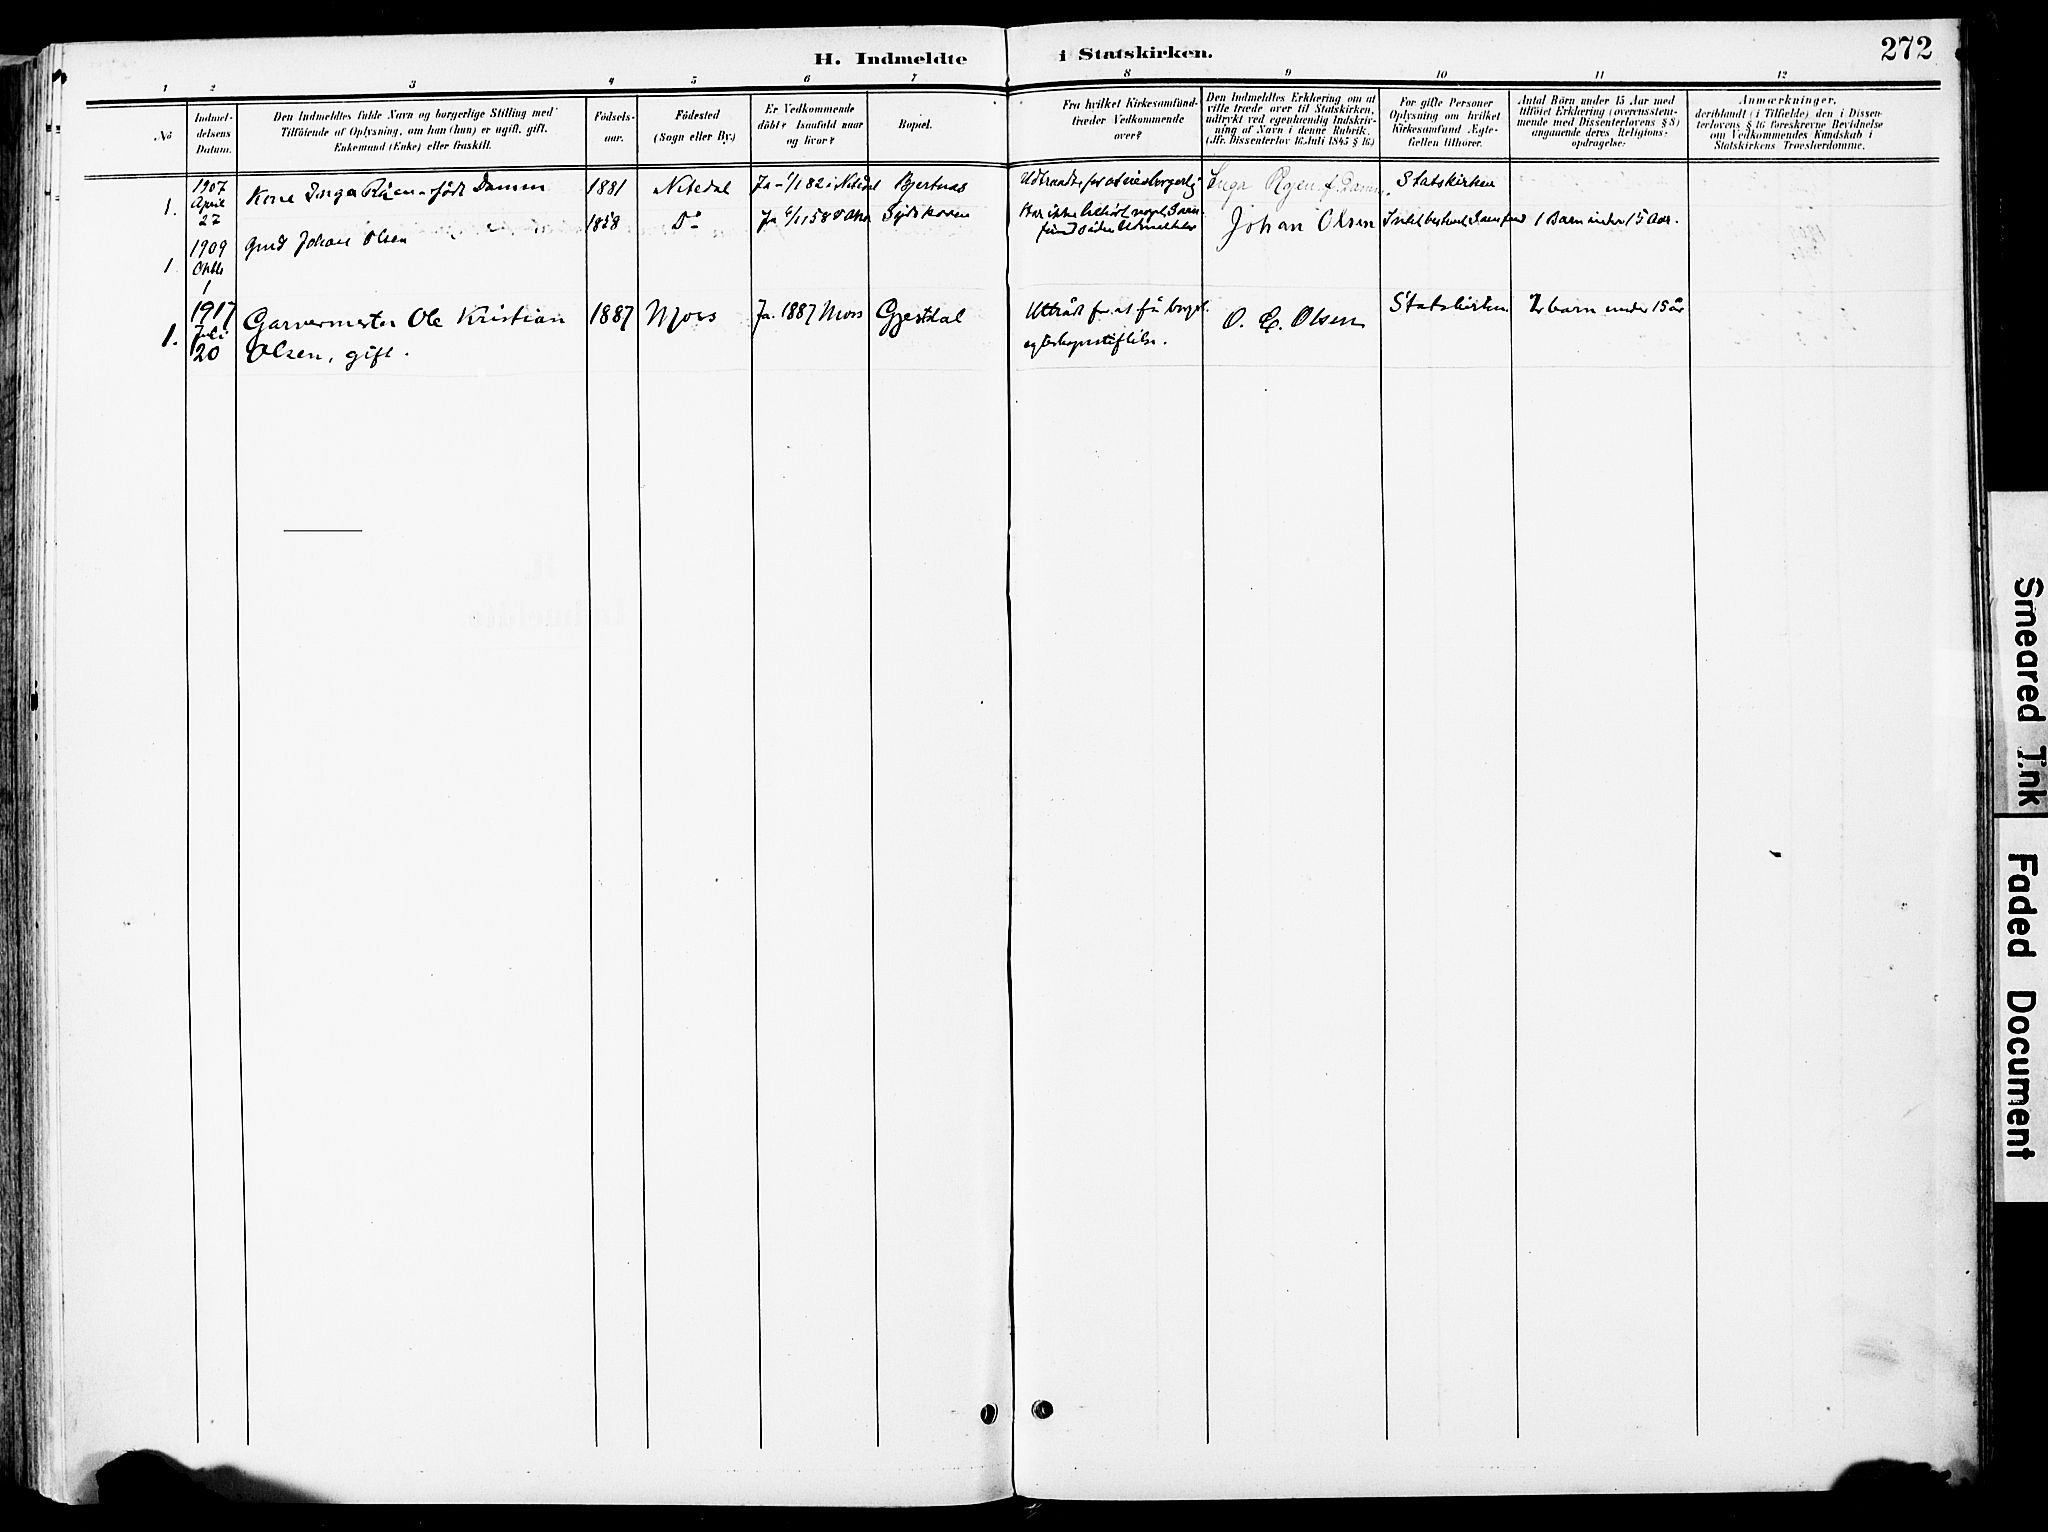 H. Indmeldte i Statskirken.
272
1 2 3 4 5 6 7 8 9 10 11 12
No
Indmel-
delsens
Datum.
Den Indmeldtes fulde Navn og borgerlige Stilling med
Tilföiende af Oplysning, om han (hun) er ugift, gift,
Enkemand (Enke) eller fraskilt.
Födsels-
aar.
Födested
(Sogn eller By.)
Er Vedkommende
döbt? Isaafald naar
og hvor?
Bopæl.
Fra hvilket Kirkesamfund
træder Vedkommende
over?
Den Indmeldtes Erklæring om at
ville træde over til Statskirken,
udtrykt ved egenhændig Indskriv-
ning af Navn i denne Rubrik.
(Jfr. Dissenterlov 16 Juli 1845 § 16.)
For gifte Personer
Oplysning om hvilket
Kirkesamfund Ægte-
fællen tilhörer.
Antal Börn under 15 Aar med
tilföiet Erklæring (overensstem-
mende med Dissenterlovens § 8)
angaaende deres Religions-
opdragelse:
Anmærkninger,
deriblandt (i Tilfælde) den i Dissen-
terlovens § 16 foreskrevne Bevidnelse
om Vedkommendes Kundskab i
Statskirkens Troeslærdomme.
1. 1907 April 27 Kone Inga født Damm 1881 Nitedal Ja - 1/1 82 i Nitedal Bjertnæs
Inga f. Damm. Statskirken
1 1909 Oktbr 1 Gmd Johan Olsen 1858 Do Ja Sydskoven
Har ikke tilhørt noget Sam-
fund siden Udmeldelse
Johan Olsen 1 Barn under 15 Aar.
1. 1917 Juli 20 Garvermester Ole Kristian 1887 Moss Ja. 1887 Moss Gjestdal
Olsen, gift.
Uttrådt for at få borgerl.
egteskapsstiftelse.
O. C. Olsen Statskirken barn under 15 år
Smeared Ink
Faded Document